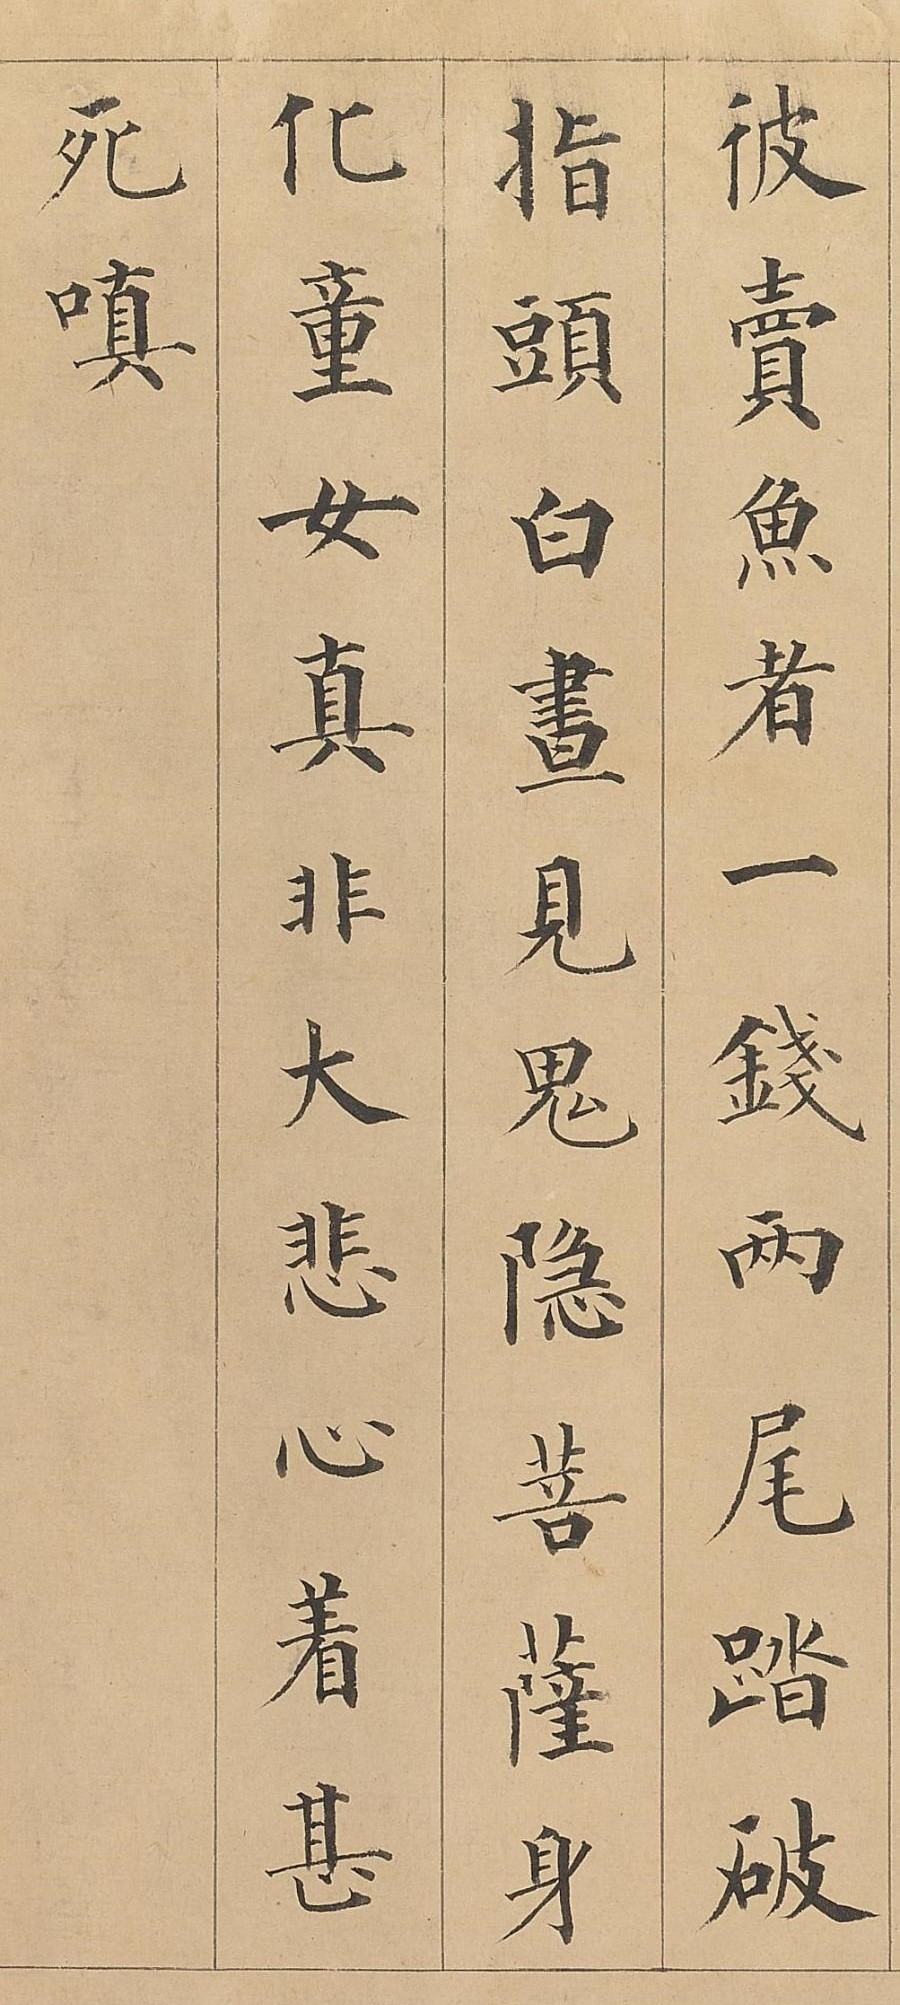 彼賣魚者一錢兩尾踏破
指頭白晝見鬼隐菩薩身
化童女真非大悲心着甚
死嗔